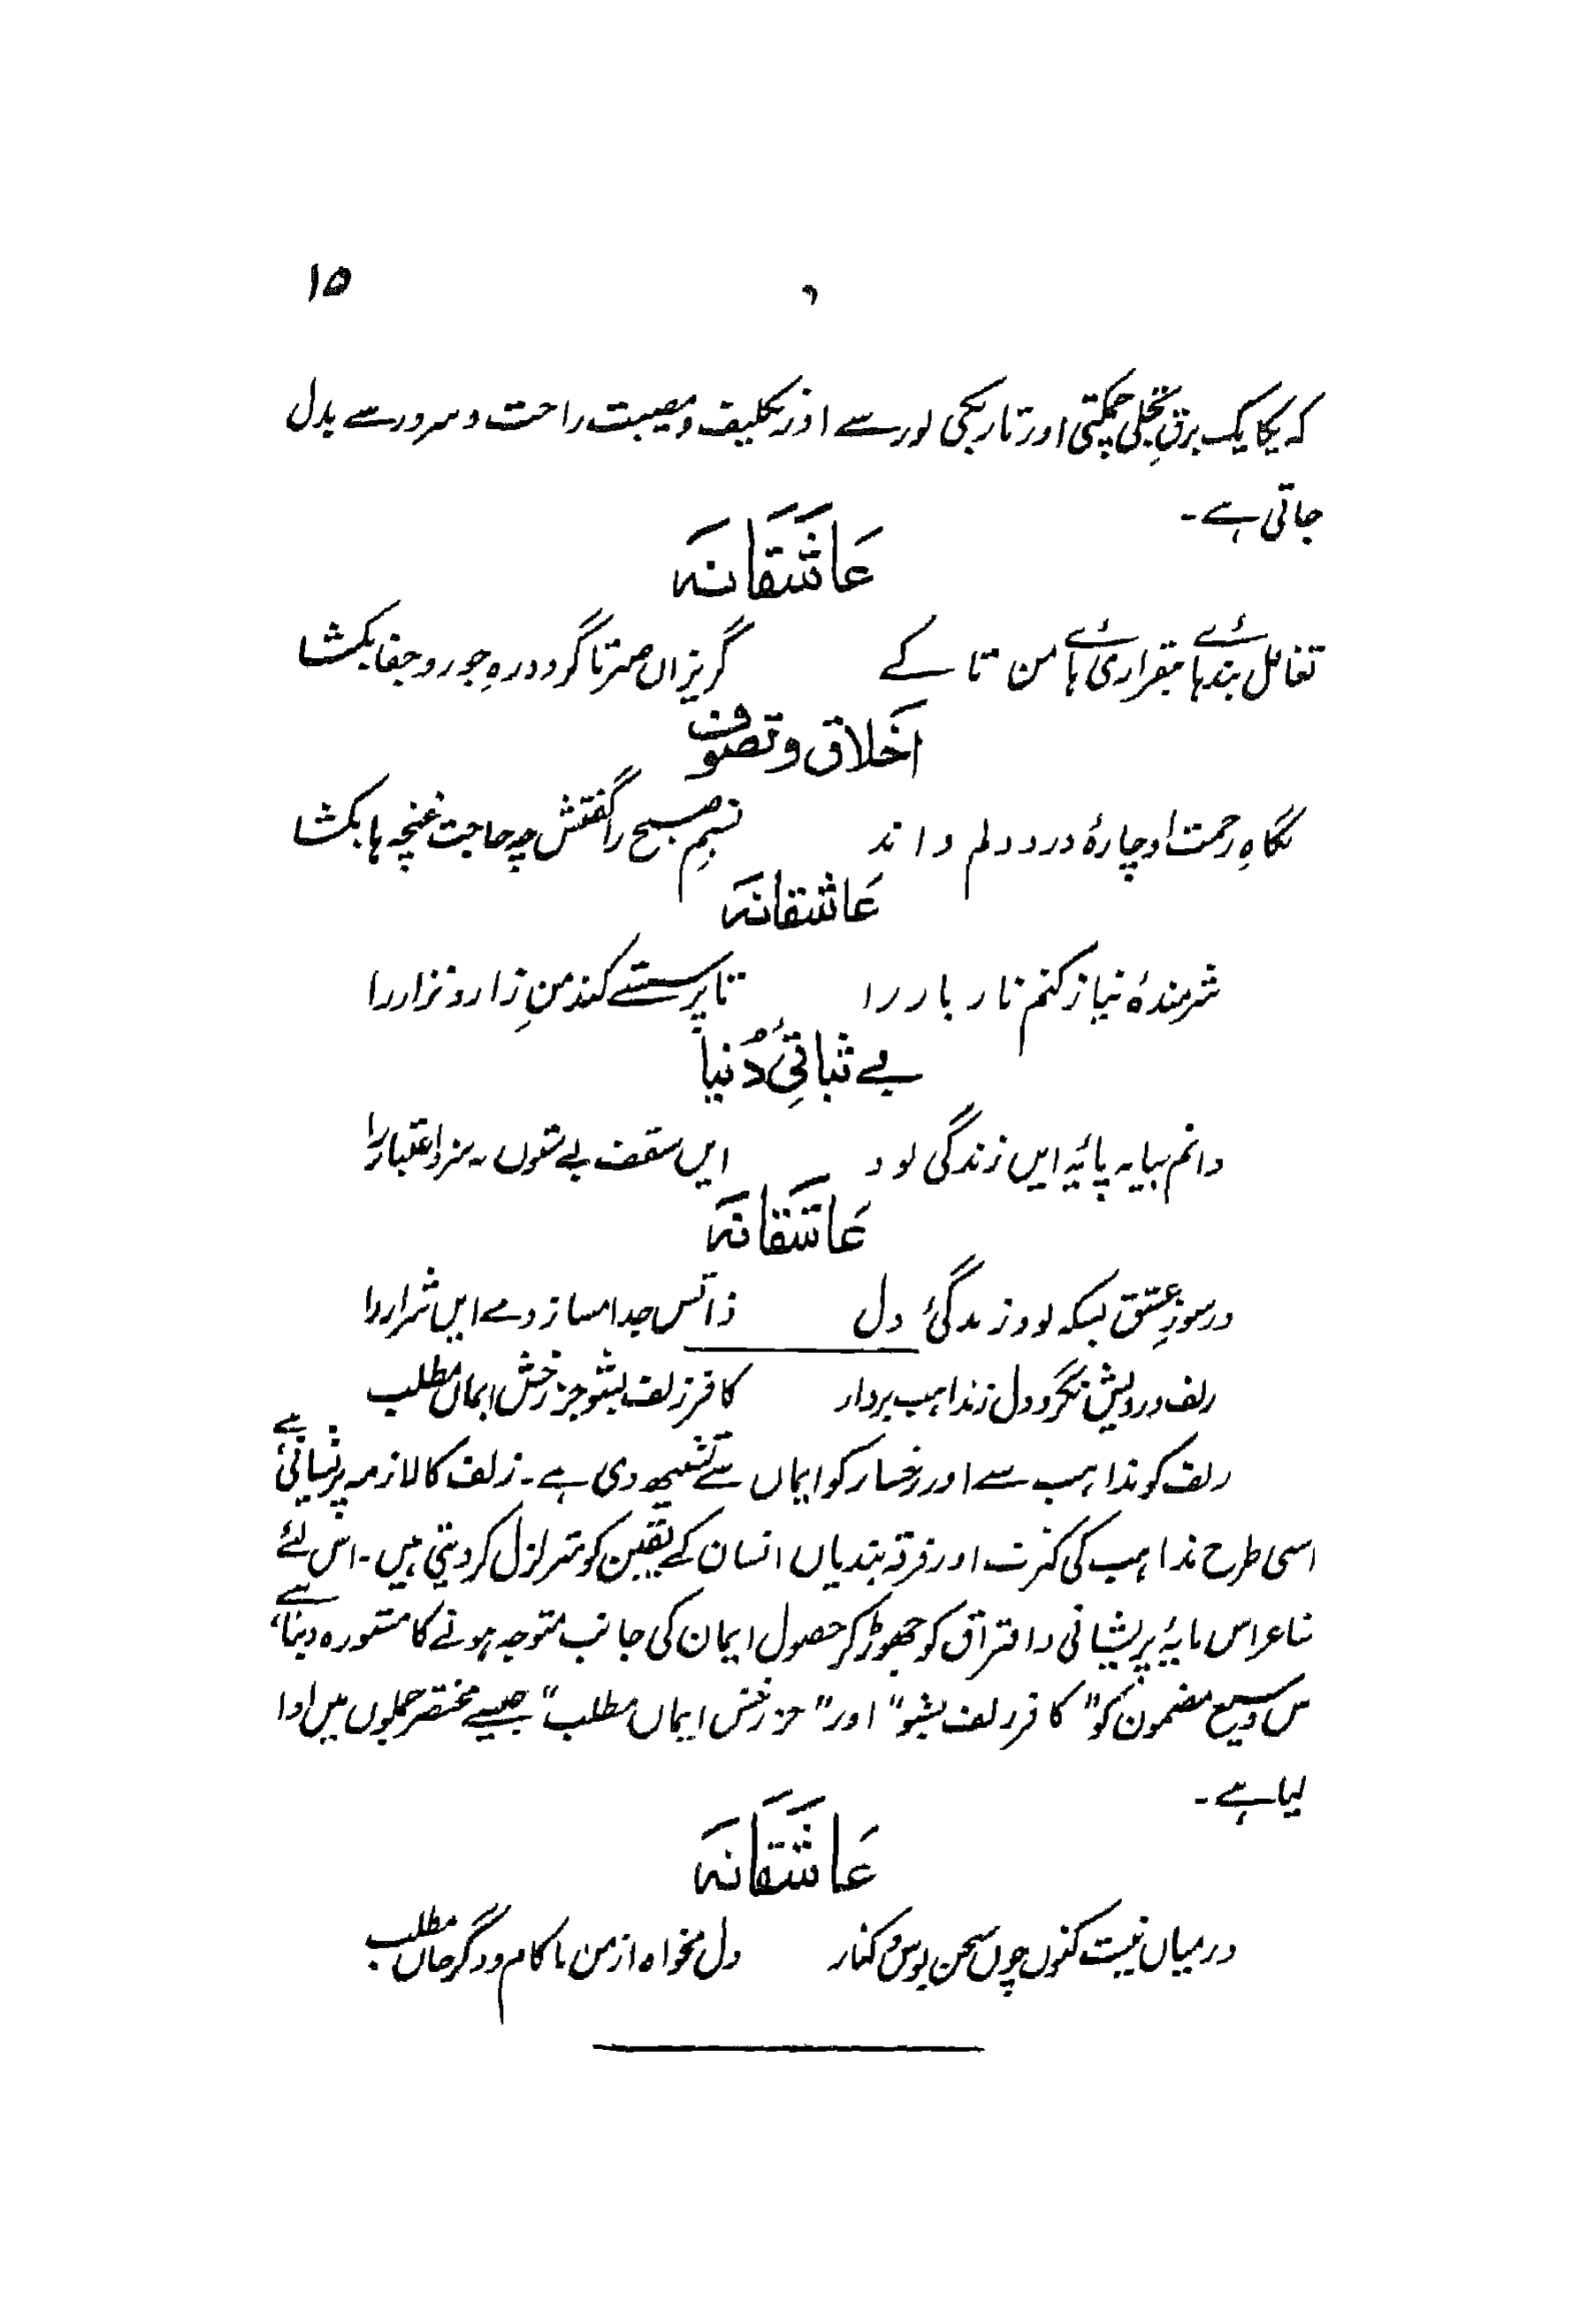 ۱۵
کہ یکایک برقِ تجلی چمکتی اور تاریکی نور سے اور تکلیف و مصیبت راحت و سرور سے بدل
جاتی ہے۔
عاشقانہ
تغافل بندہائے بیقراری ہائے من تا کے گریزاں صبر تا گردد درِ جور و جفا بکشا
اخلاق و تصوف
نگاہِ رحمت او چارۂ درد دلم داند نسیمِ صبح را گفتش چہ حاجت غنچہ ہا بکشا
عاشقانہ
شرمندۂ نیاز کنم ناز یار را تا پرسشے کند من زار و نزار را
بے ثباتیِ دُنیا
دانم بپایہ پائیہ ایں زندگی بود ایں سقف بے ستوں نہ سزد اعتبار را
عاشقانہ
در سوزِ عشق بسکہ بود زندگیٔ دل ز آتش جدا مساز دمے ایں شرار را
زلف و رویش نگر و دل ز مذاہب بردار کافر زلف بشو جز رخش ایماں مطلب
زلف کو مذاہب سے اور رخسار کو ایماں سے تشبیہ دی ہے۔ زلف کا لازمہ پریشانی ہے
اسی طرح مذاہب کی کثرت اور فرقہ بندیاں انسان کے یقین کو متزلزل کر دیتی ہیں۔ اس لئے
شاعر اس مایۂ پریشانی و افتراق کو چھوڑ کر حصول ایمان کی جانب متوجہ ہونے کا مشورہ دیتا ہے،
س وسیع مضمون کو "کافر زلف بشو" اور "جز رخش ایماں مطلب" جیسے مختصر جملوں میں ادا
کیا ہے۔
عاشقانہ
درمیاں نیست کنوں چوں سخن بوس و کنار دل مخواہ از من ناکام و دگر جاں مطلب